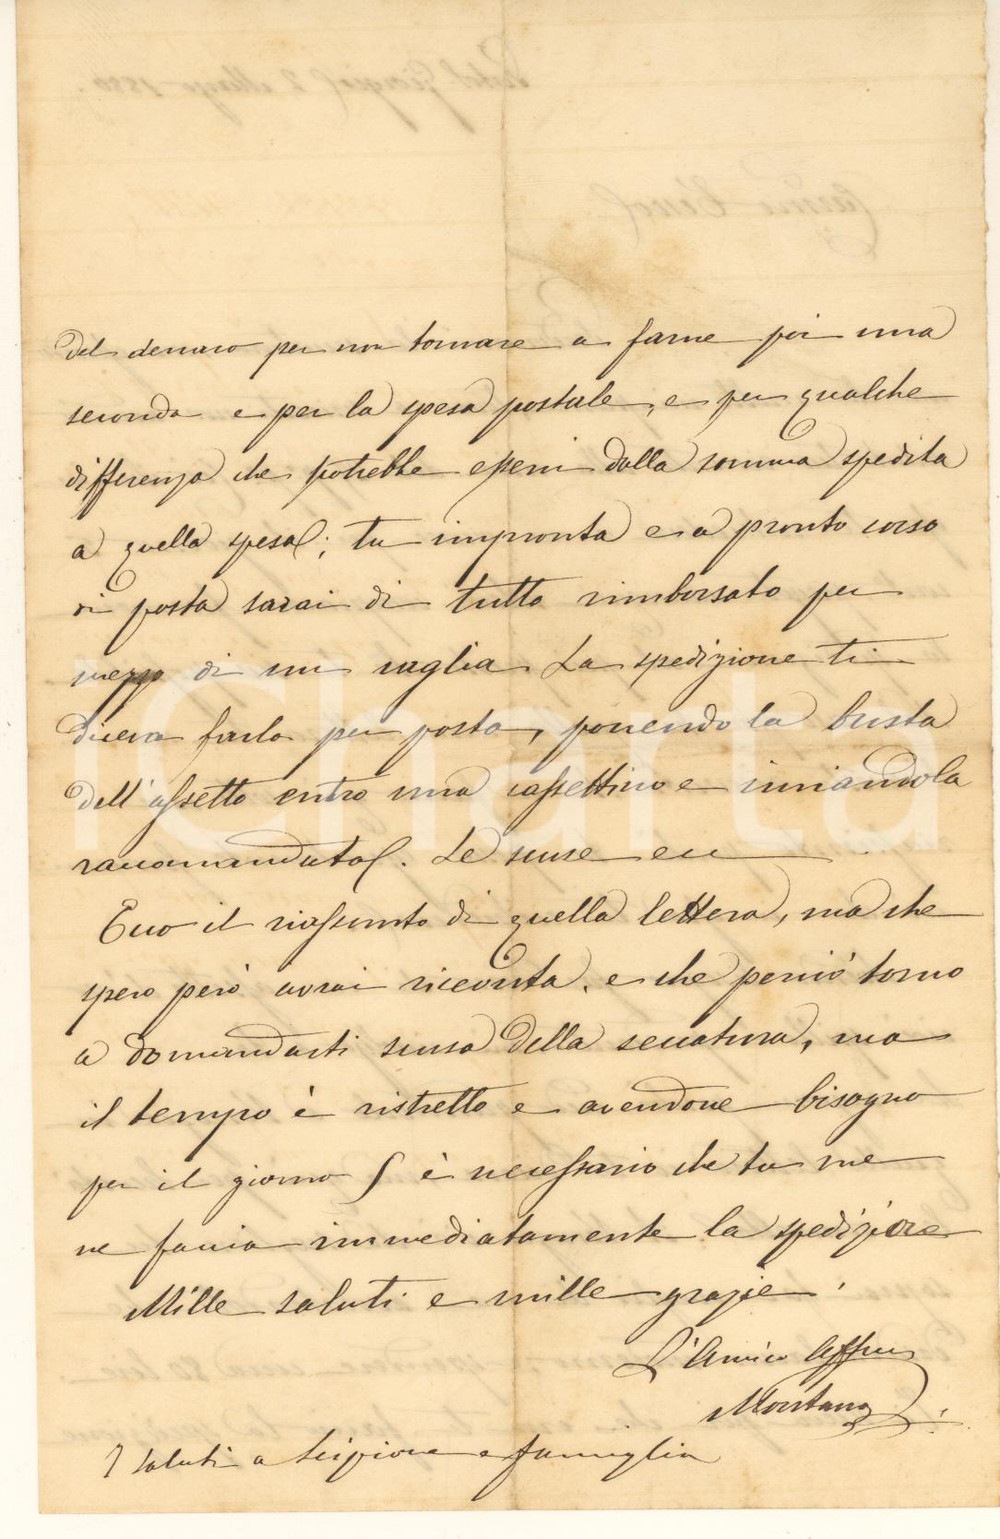 del denaro per non tornare a farne poi una
seconda e per la spesa postale, e per qualche
differenza che potrebbe esservi dalla somma spedita
a quella spesa; tu impronta e a pronto corso
di posta sarai di tutto rimborsato per
mezzo di un vaglia. La spedizione ti
diceva farla per posta, ponendo la busta
dell'assetto entro una cassettina e inviandola
raccomandata. Le scuse ecc
Ecco il riassunto di quella lettera, ma che
spero però avrai ricevuta, e che perciò torno
a domandarti scusa della seccatura, ma
il tempo è ristretto e avendone bisogno
per il giorno è necessario che tu me
ne faccia immediatamente la spedizione
Mille saluti e mille grazie.
L'Amico Affmo
Montana
I saluti a Scipione e famiglia
Charta